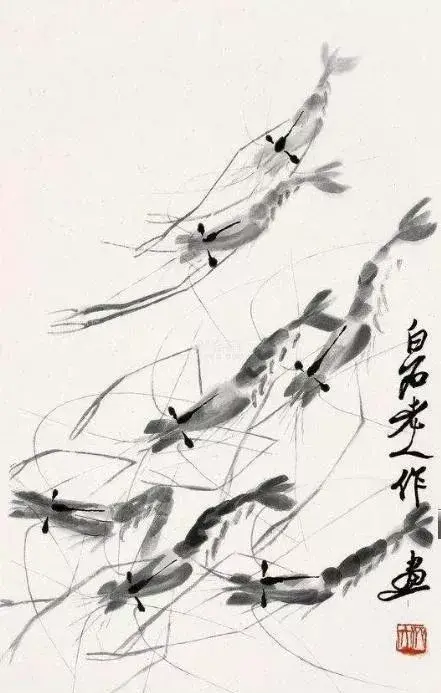 白石老人作
画